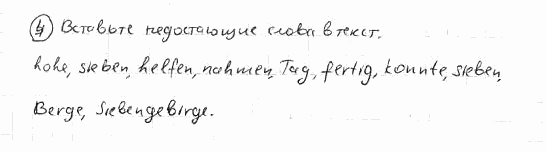 ④ Вставьте недостающие слова в текст.
hohe, sieben, helfen, nahmen, Tag, fertig, konnte, sieben,
Berge, Siebengebirge.